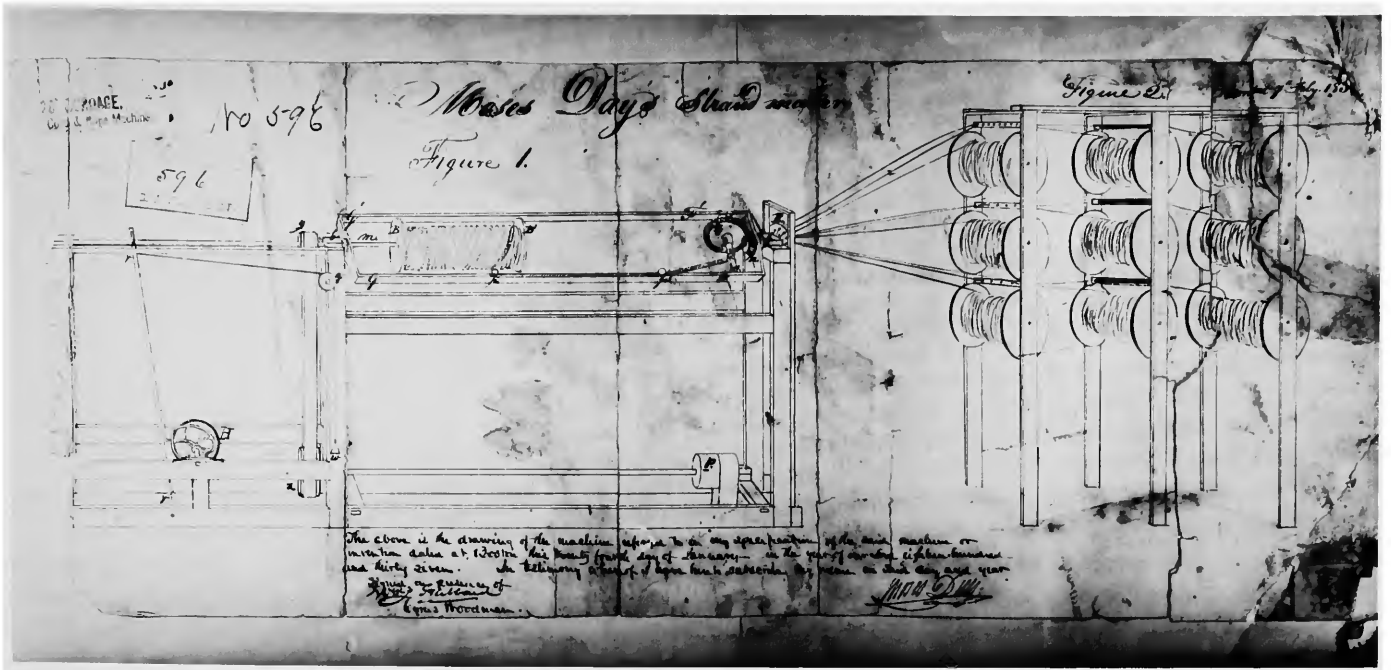 CORDAGE,
Cord & Rope Machine
No 596
596
Moses Day's Strand maker
Figure 1.
Figure 2d
The above is the drawing of the machine referred to in my specification of the said machine or
invention dated at Boston this twenty fourth day of January in the year of our lord eighteen hundred
and thirty seven. In testimony whereof I have hereto subscribed my name on said day and year
Signed in presence of
Cyrus Woodman.
Moses Day